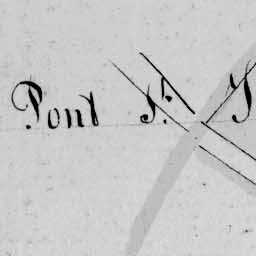 Pont St.